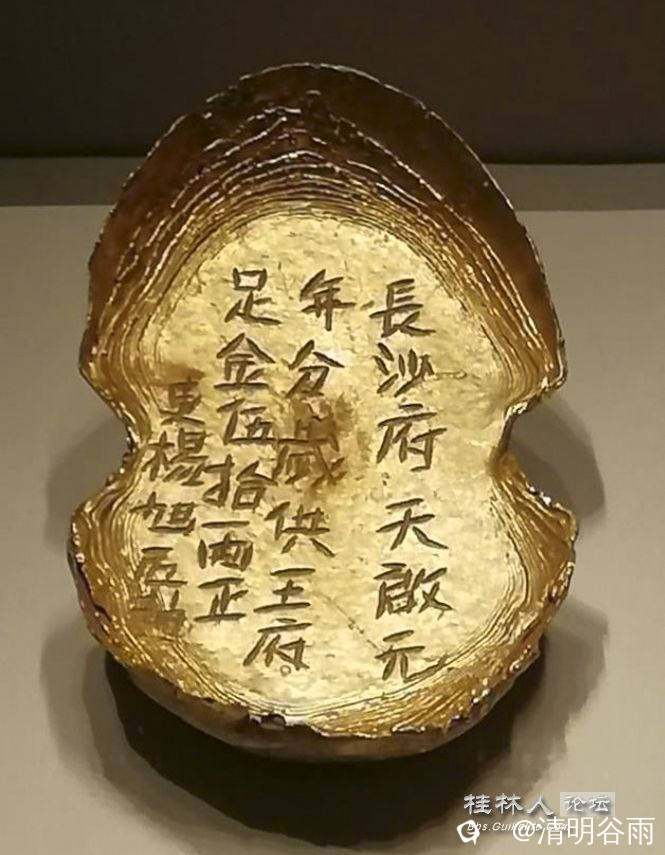 長沙府天啟元
年分歲供王府
足金伍拾兩正
吏楊旭
桂林人论坛
bbs.Guilinlife.com
@清明谷雨